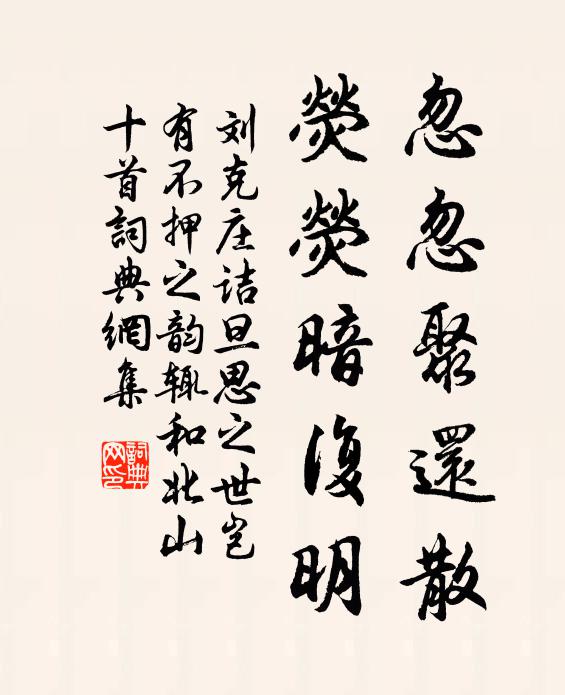 忽忽聚還散
熒熒暗復明
刘克庄诘旦思之世岂
有不押之韵辄和北山
十首詞典網集
詞典
网印